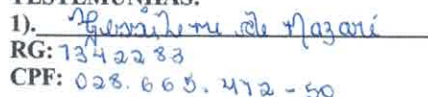 TESTEMUNHAS:
1). de Nazaré
RG: 7342283
CPF: 028.665.472-50